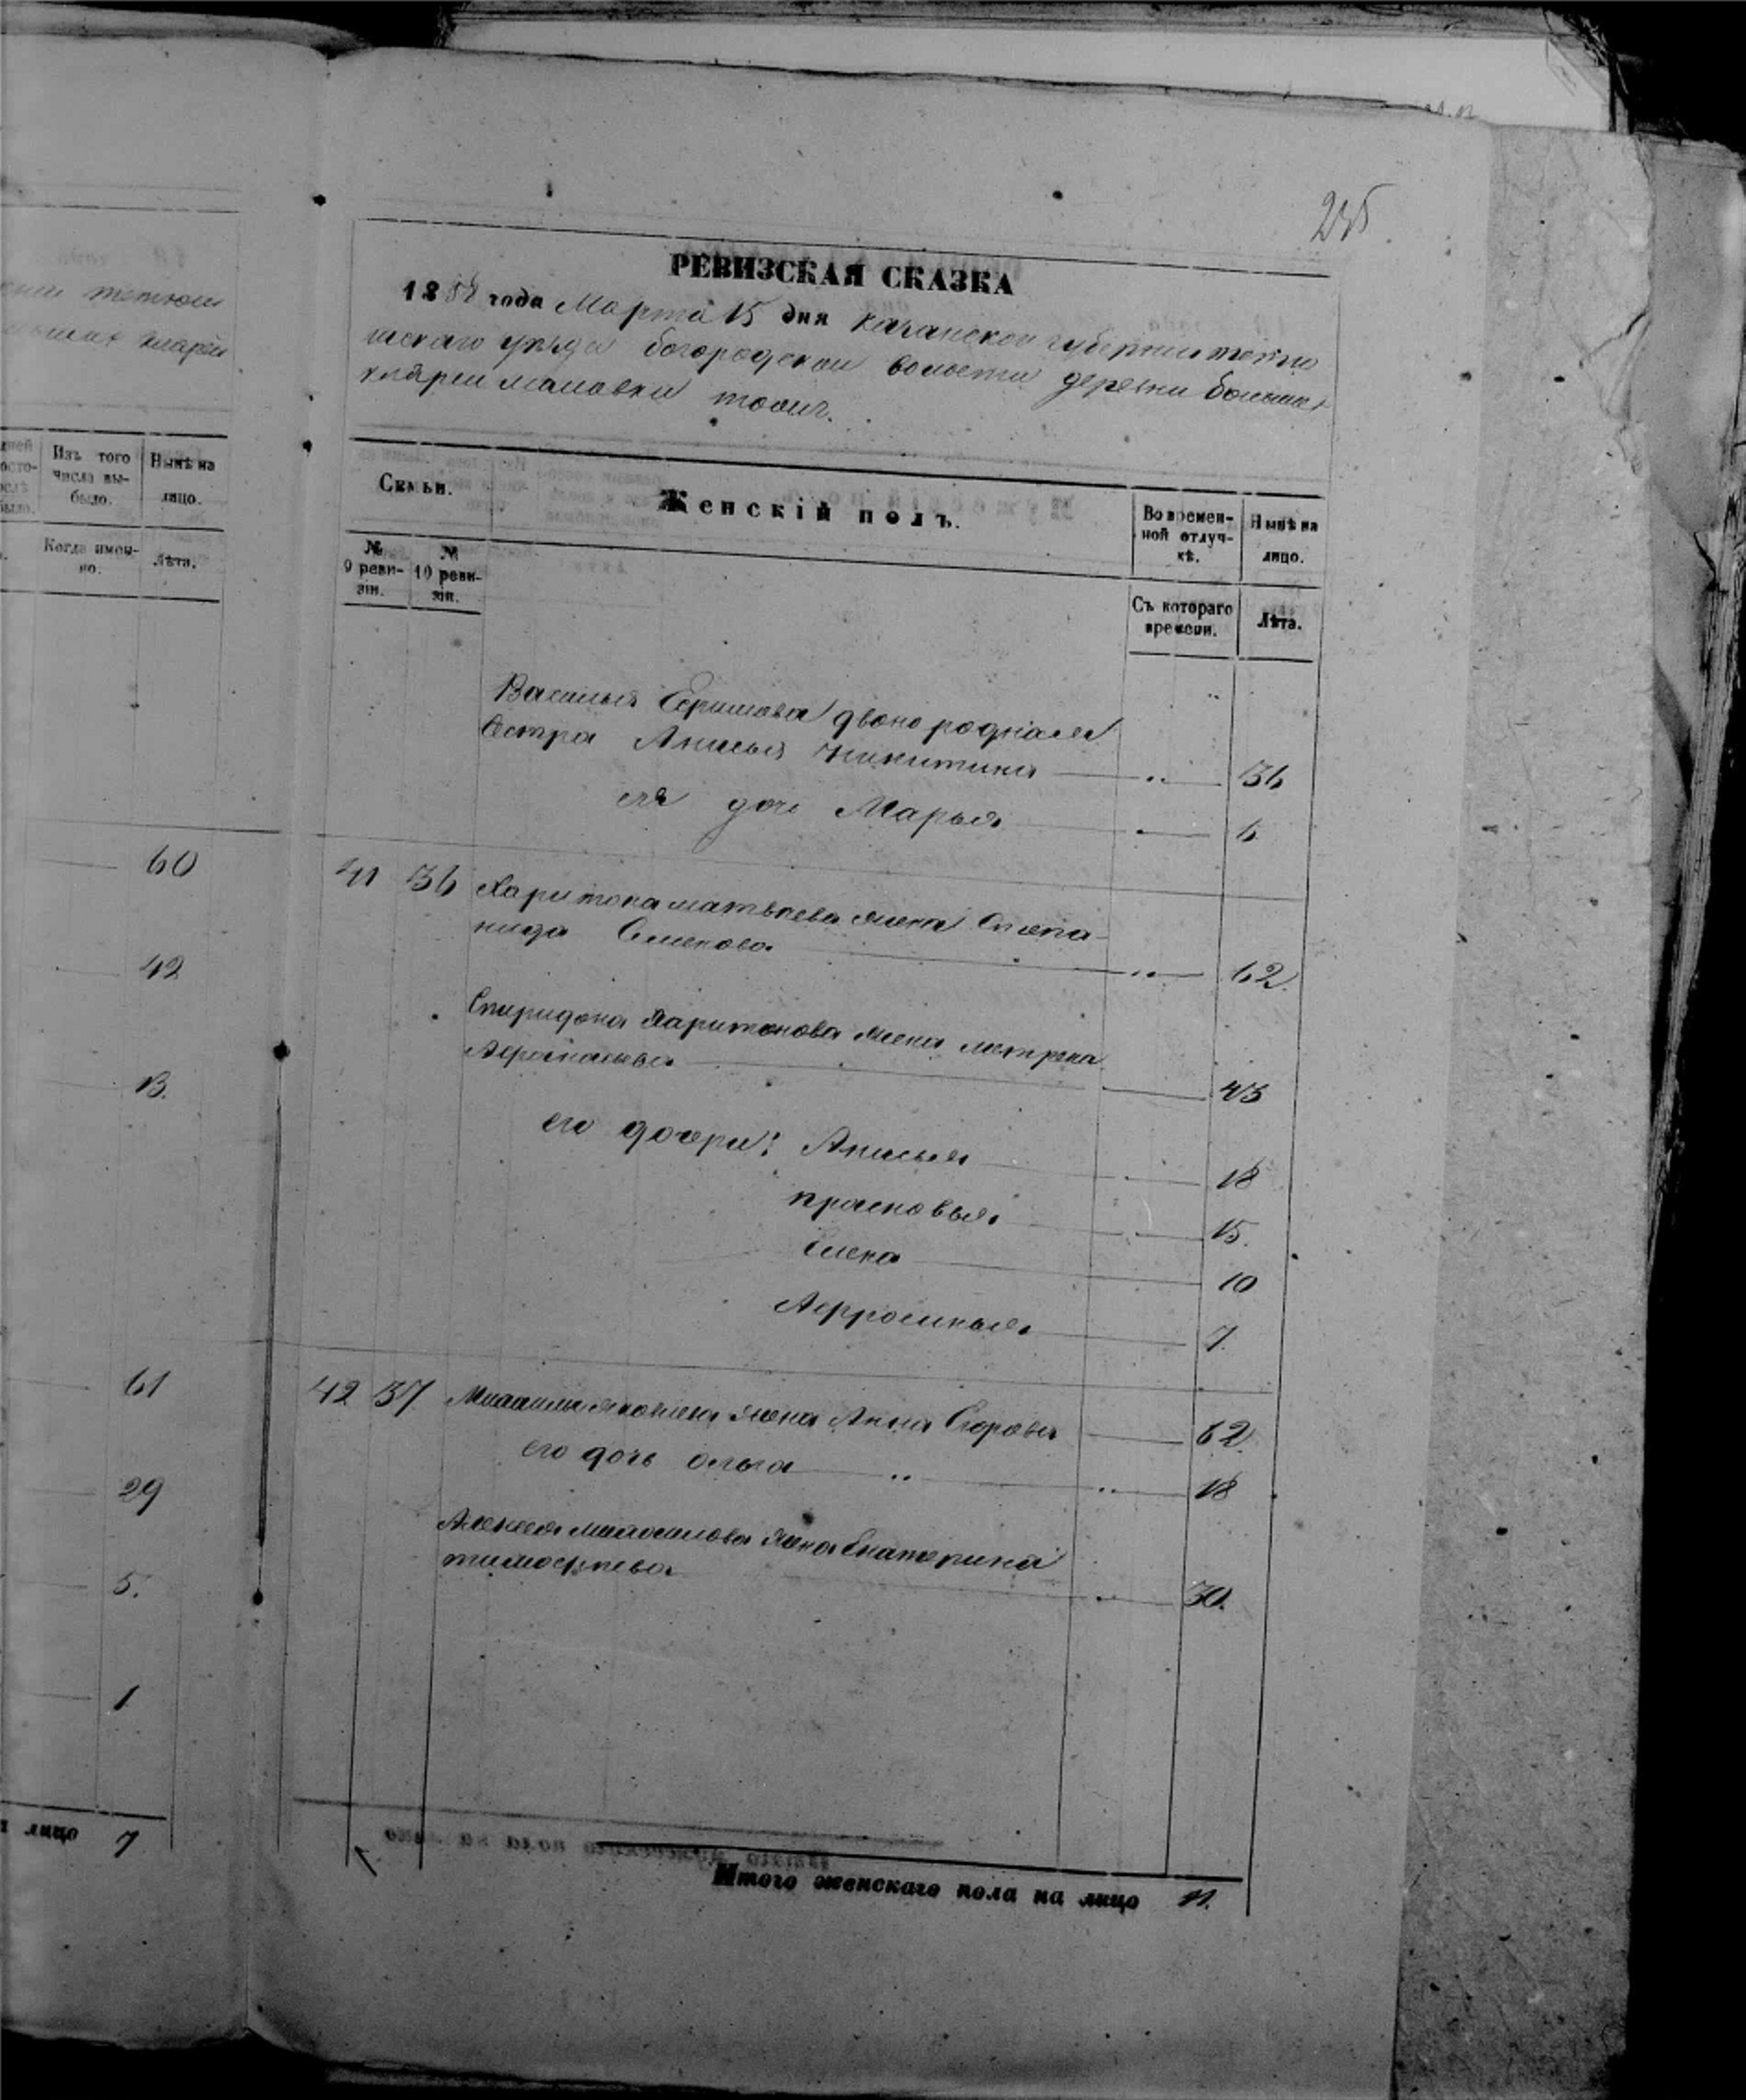 235
РЕВИЗСКАЯ СКАЗКА
1858 года Марта 15 дня Казанской губернии тетю
шскаго уезда богородской волости деревни больших
Семьи.
Женскій полъ.
Во времен-
ной отлуч-
кѣ.
Нынѣ на
лицо.
№
9 реви-
зіи.
№
10 реви-
зіи.
Съ котораго
времени.
Лѣта.
Василья Ефимова двоюродная
Сестра Анисья Никитина 36
ея дочь Марья 6
41 36 Харитона матвѣева жена Степа-
нида Семенова 62.
Спиридона Харитонова жена матрена
Афанасьева 43
его дочери: Анисья 18
прасковья 15.
Елена 10
Афросинья 7.
42 37 Михаила яковлева жена Анна Егорова 62.
его дочь ольга 18
Алексея михайлова жена Екатерина
тимофѣева 30.
Итого женскаго пола на лицо 11.
Изъ того
числа вы-
было.
Нынѣ на
лицо.
Когда имен-
но.
Лѣта.
60
42
13.
61
29
5.
1
лицо 7